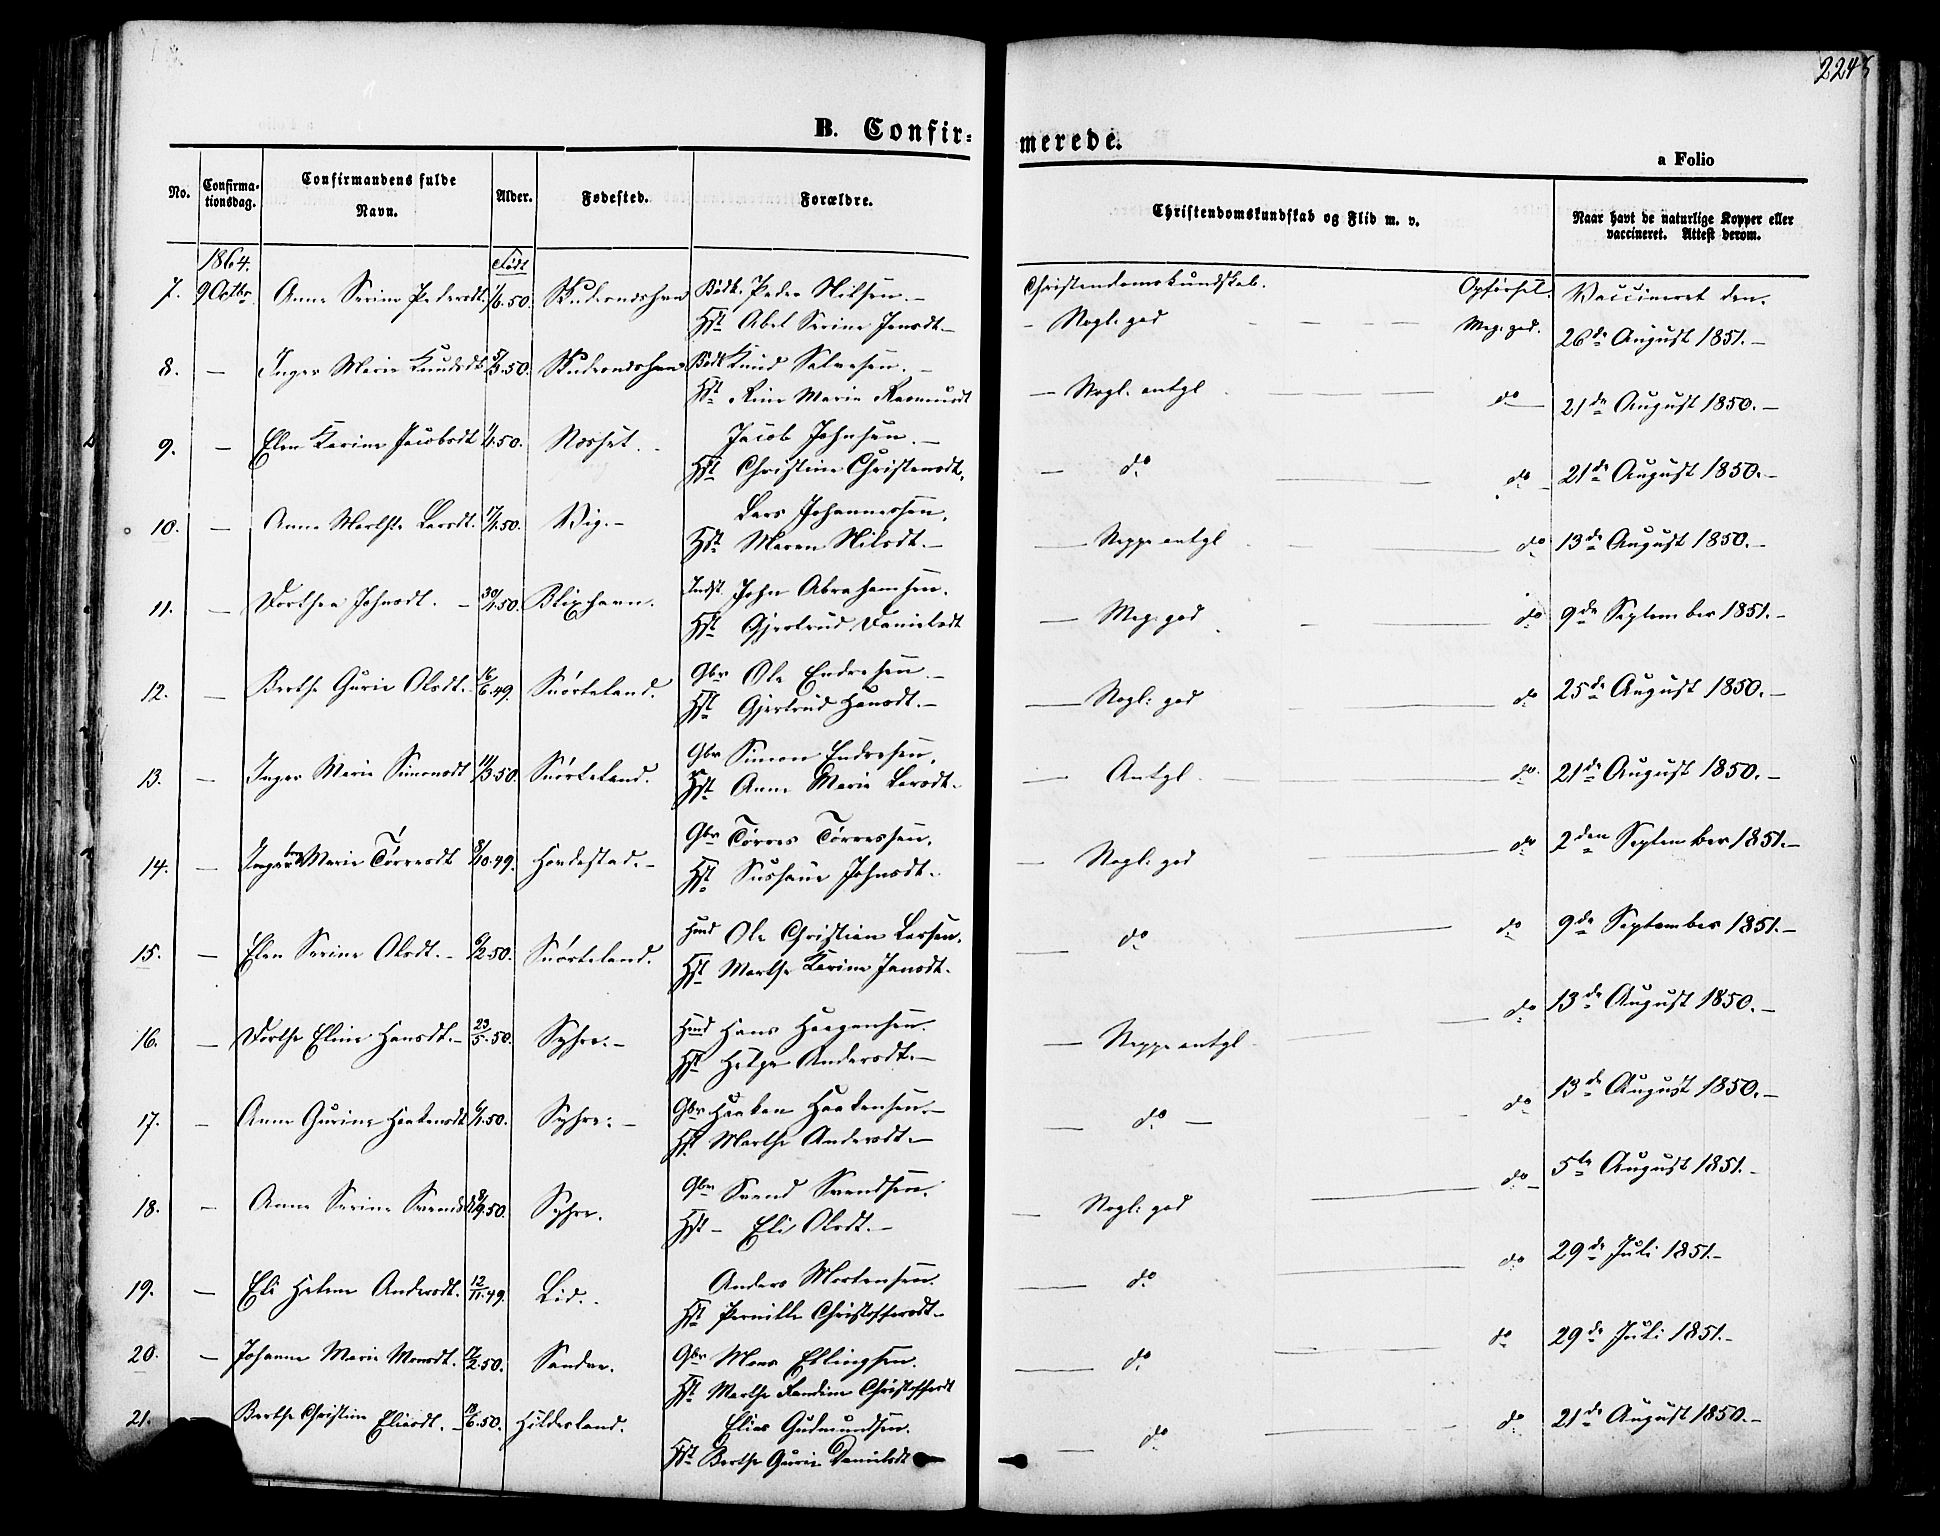 2243
B. Confir=
merede.
a Folio
No.
Confirma-
tionsdag.
Confirmandens fulde
Navn.
Alder.
Fødested.
Forældre.
Christendomskundskab og Flid m. v.
Naar havt de naturlige Kopper eller
vaccineret. Attest derom.
1864. Født
7. 9 Octbr. Anne Serine Pedersdt. 1/6.50. Skudesneshavn Bødk. Peder Nilsen.
Hst Abel Serine Jensdt.
Christendomskundskab. Opførsel. Vaccineret den.
Nogl: god Meg: god. 26de August 1851.
8. Inger Marie Knudsdt 5/3.50. Skudesneshavn Bødk Knud Salvesen.
Hst Rine Marie Rasmusdt
Nogl. antgl do 21de August 1850.
9. Elen Karine Jacobsdt .50. Jacob Johnsen.
Hst Christine Christensdt.
do do 21de August 1850.
10. Anne Marthe Larsdt. 17/1.50. Vig. Lars Johannessen,
Hst Maren Nilsdt.
Neppe antgl do 13de August 1850.
11. Dorthea Johnsdt. 30/1.50. Blixhavn. Indst. John Abrahamsen.
Hst Gjertrud Danielsdt
Meg: god do 9de September 1851.
12. Berthe Gurie Olsdt. 16/6.49. Snørteland. Gbr Ole Endresen.
Hst Gjertrud Hansdt.
Nogl: god do 25de August 1850.
13. Inger Marie Simonsdt 11/3.50. Snørteland. Gbr Simon Endresen,
Hst Anne Marie Larsdt.
Antgl. do. 21de August 1850.
14. Ingebor Marie Tørresdt 8/10.49. Hordestad. Gbr Tørres Tørressen,
Hst Sussane Johnsdt.
Nogl: god do 2den September 1851.
15. Elen Serine Olsdt. 6/2.50. Snørteland. Hmd Ole Christian Larsen.
Hst Marthe Karine Jansdt.
do do 9de September 1851.
16. Dorthe Eline Hansdt. 23/5.50. Syhre. Hmd Hans Haagensen.
Hst Helge Andersdt.
Neppe antgl do 13de August 1850.
17. Anne Gurine Haakensdt 6/1.50. Syhre. Gbr Haaken Haakensen.
Hst Marthe Andersdt.
do do 13de August 1850.
18. Anne Serine Svendsdt .50. Syhre. Gbr Svend Svendsen.
Hst Eli Olsdt.
Nogl: god do 5te August 1851.
19. Eli Helene Andersdt. 12/11.49. Lid. Anders Mortensen.
Hst Pernille Christoffersdt.
do do 29de Juli 1851.
20. Johanne Marie Monsdt. 17/2.50. Sandve. Gbr Mons Ellingsen.
Hst Marthe Randine Christoffersdt
do do 29de Juli 1851.
21. Berthe Christine Eliasdt. /6.50. Hildesland. Elias Gudmundsen.
Hst Berthe Gurie Danielsdt
do do 21de August 1850.